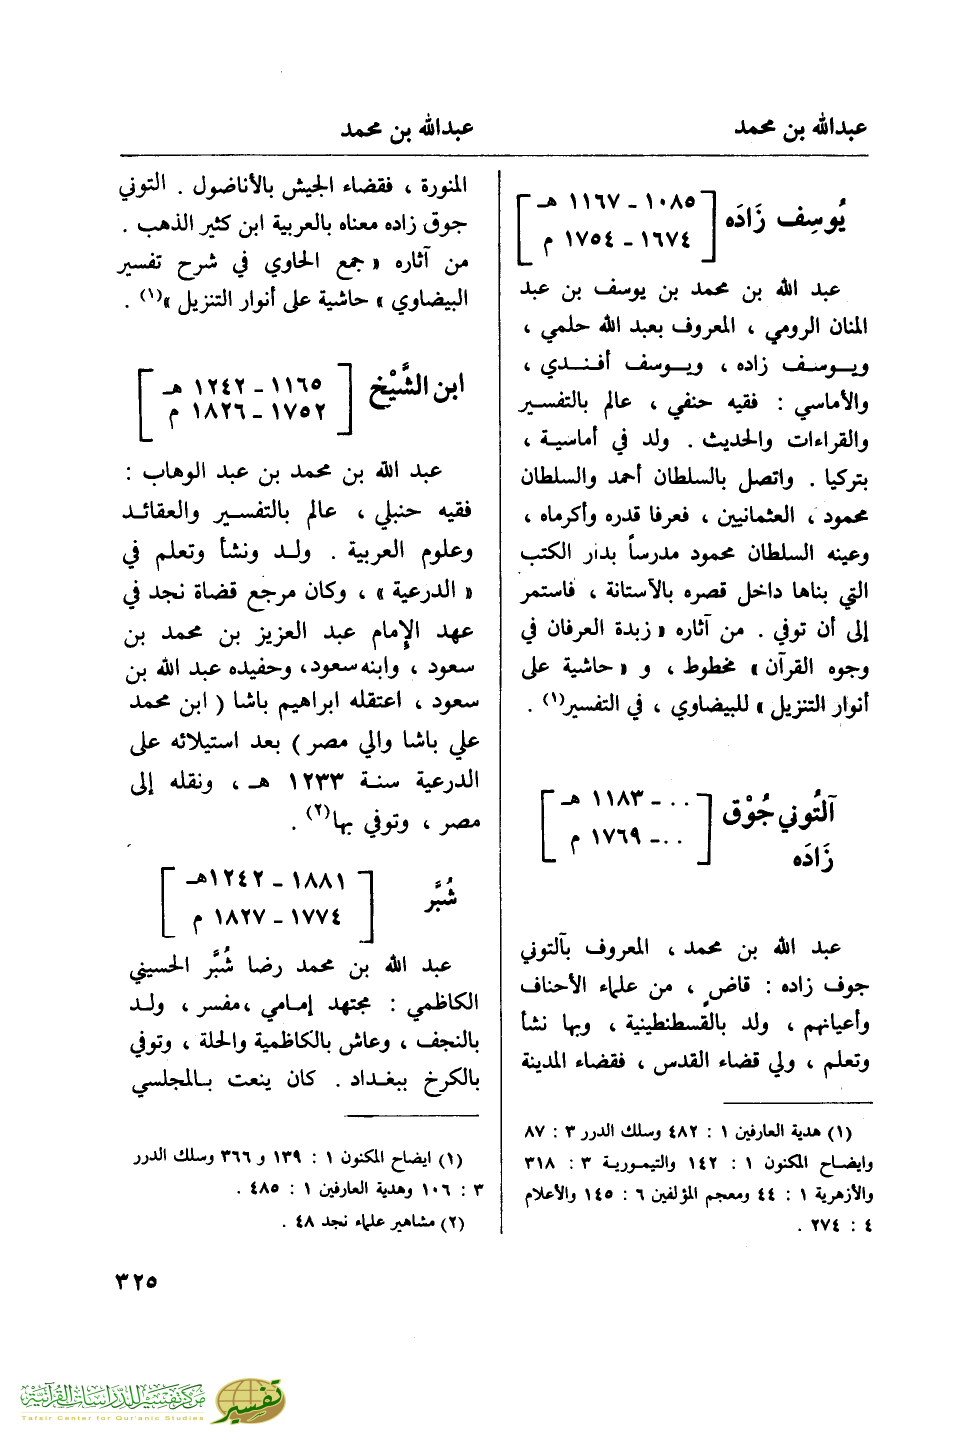 عبدالله بن محمد
عبدالله بن محمد
يُوسِف زَادَه
١٠٨٥ - ١١٦٧ هـ
١٦٧٤ - ١٧٥٤ م
عبد الله بن محمد بن يوسف بن عبد
المنان الرومي ، المعروف بعبد الله حلمي ،
ويـوسـف زاده ، ويـوسف أفـنـدي ،
والأماسي : فقيه حنفي ، عالم بالتفسير
والقراءات والحديث . ولد في أماسية ،
بتركيا . واتصل بالسلطان أحمد والسلطان
محمود ، العثمانيين ، فعرفا قدره وأكرماه ،
وعينه السلطان محمود مدرساً بدار الكتب
التي بناها داخل قصره بالآستانة ، فاستمر
إلى أن توفي . من آثاره « زبدة العرفان في
وجوه القرآن » مخطوط ، و « حاشية على
أنوار التنزيل » للبيضاوي ، في التفسير(١) .
آلتُوني جُوْق
زَادَه
٠٠ - ١١٨٣ هـ
٠٠ - ١٧٦٩ م
عبد الله بن محمد ، المعروف بآلتوني
جوف زاده : قاضٍ ، من علماء الأحناف
وأعيانهم ، ولد بالقسطنطينية ، وبها نشأ
وتعلم ، ولي قضاء القدس ، فقضاء المدينة
(١) هدية العارفين ١ : ٤٨٢ وسلك الدرر ٣ : ٨٧
وايضـاح المكنون ١ : ١٤٢ والتيمـورية ٣ : ٣١٨
والأزهرية ١ : ٤٤ ومعجم المؤلفين ٦ : ١٤٥ والأعلام
٤ : ٢٧٤ .
المنورة ، فقضاء الجيش بالأناضول . التوني
جوق زاده معناه بالعربية ابن كثير الذهب .
من آثاره « جمع الحاوي في شرح تفسير
البيضاوي » حاشية على أنوار التنزيل »(١) .
ابن الشَّيْخ
١١٦٥ - ١٢٤٢ هـ
١٧٥٢ - ١٨٢٦ م
عبد الله بن محمد بن عبد الوهاب :
فقيه حنبلي ، عالم بالتفسـير والعقائـد
وعلوم العربية . ولـد ونشأ وتعلم في
« الدرعية » ، وكان مرجع قضاة نجد في
عهد الإمام عبد العزيز بن محمد بن
سعود ، وابنه سعود، وحفيده عبد الله بن
سعود ، اعتقله ابراهيم باشا ( ابن محمد
علي باشا والي مصر ) بعد استيلائه على
الدرعية سنـة ١٢٣٣ هـ ، ونقله إلى
مصر ، وتوفي بها(٢) .
شُبَّر
١٨٨١ - ١٢٤٢هـ
١٧٧٤ - ١٨٢٧ م
عبد الله بن محمد رضا شُبَّر الحسيني
الكاظمي : مجتهد إمـامي ،مفسر ، ولـد
بالنجف ، وعاش بالكاظمية والحلة ، وتوفي
بالكرخ ببغـداد . كان ينعت بـالمجلسي
(١) ايضاح المكنون ١ : ١٣٩ و ٣٦٦ وسلك الدرر
٣ : ١٠٦ وهدية العارفين ١ : ٤٨٥ .
(٢) مشاهير علماء نجد ٤٨ .
٣٢٥
مركز تفسير للدراسات القرآنية
Tafsir Center for Qur'anic Studies
تفسير